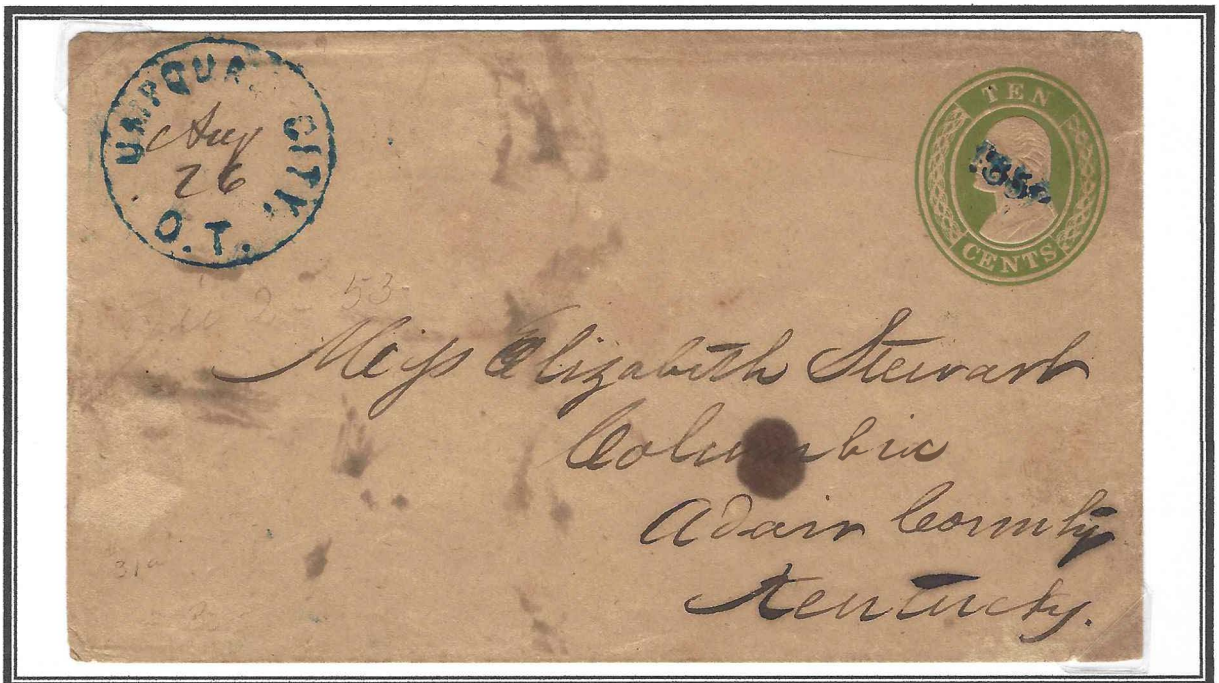 UMPQUA CITY,
O.T.
Aug
26
TEN
CENTS
53
Miss Elizabeth Stewart
Columbia
Adair County
Kentucky.